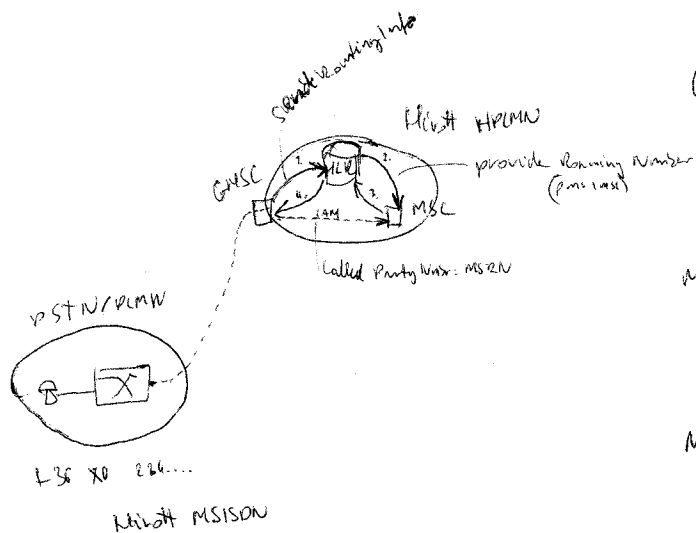 SendRoutingInfo
Hívott HPLMN
GMSC
1.
HLR
2.
provide Roaming Number
4.
3.
IAM
MSC
Called Party Number: MSRN
PSTN/PLMN
+36 X0 234....
Hívott MSISDN